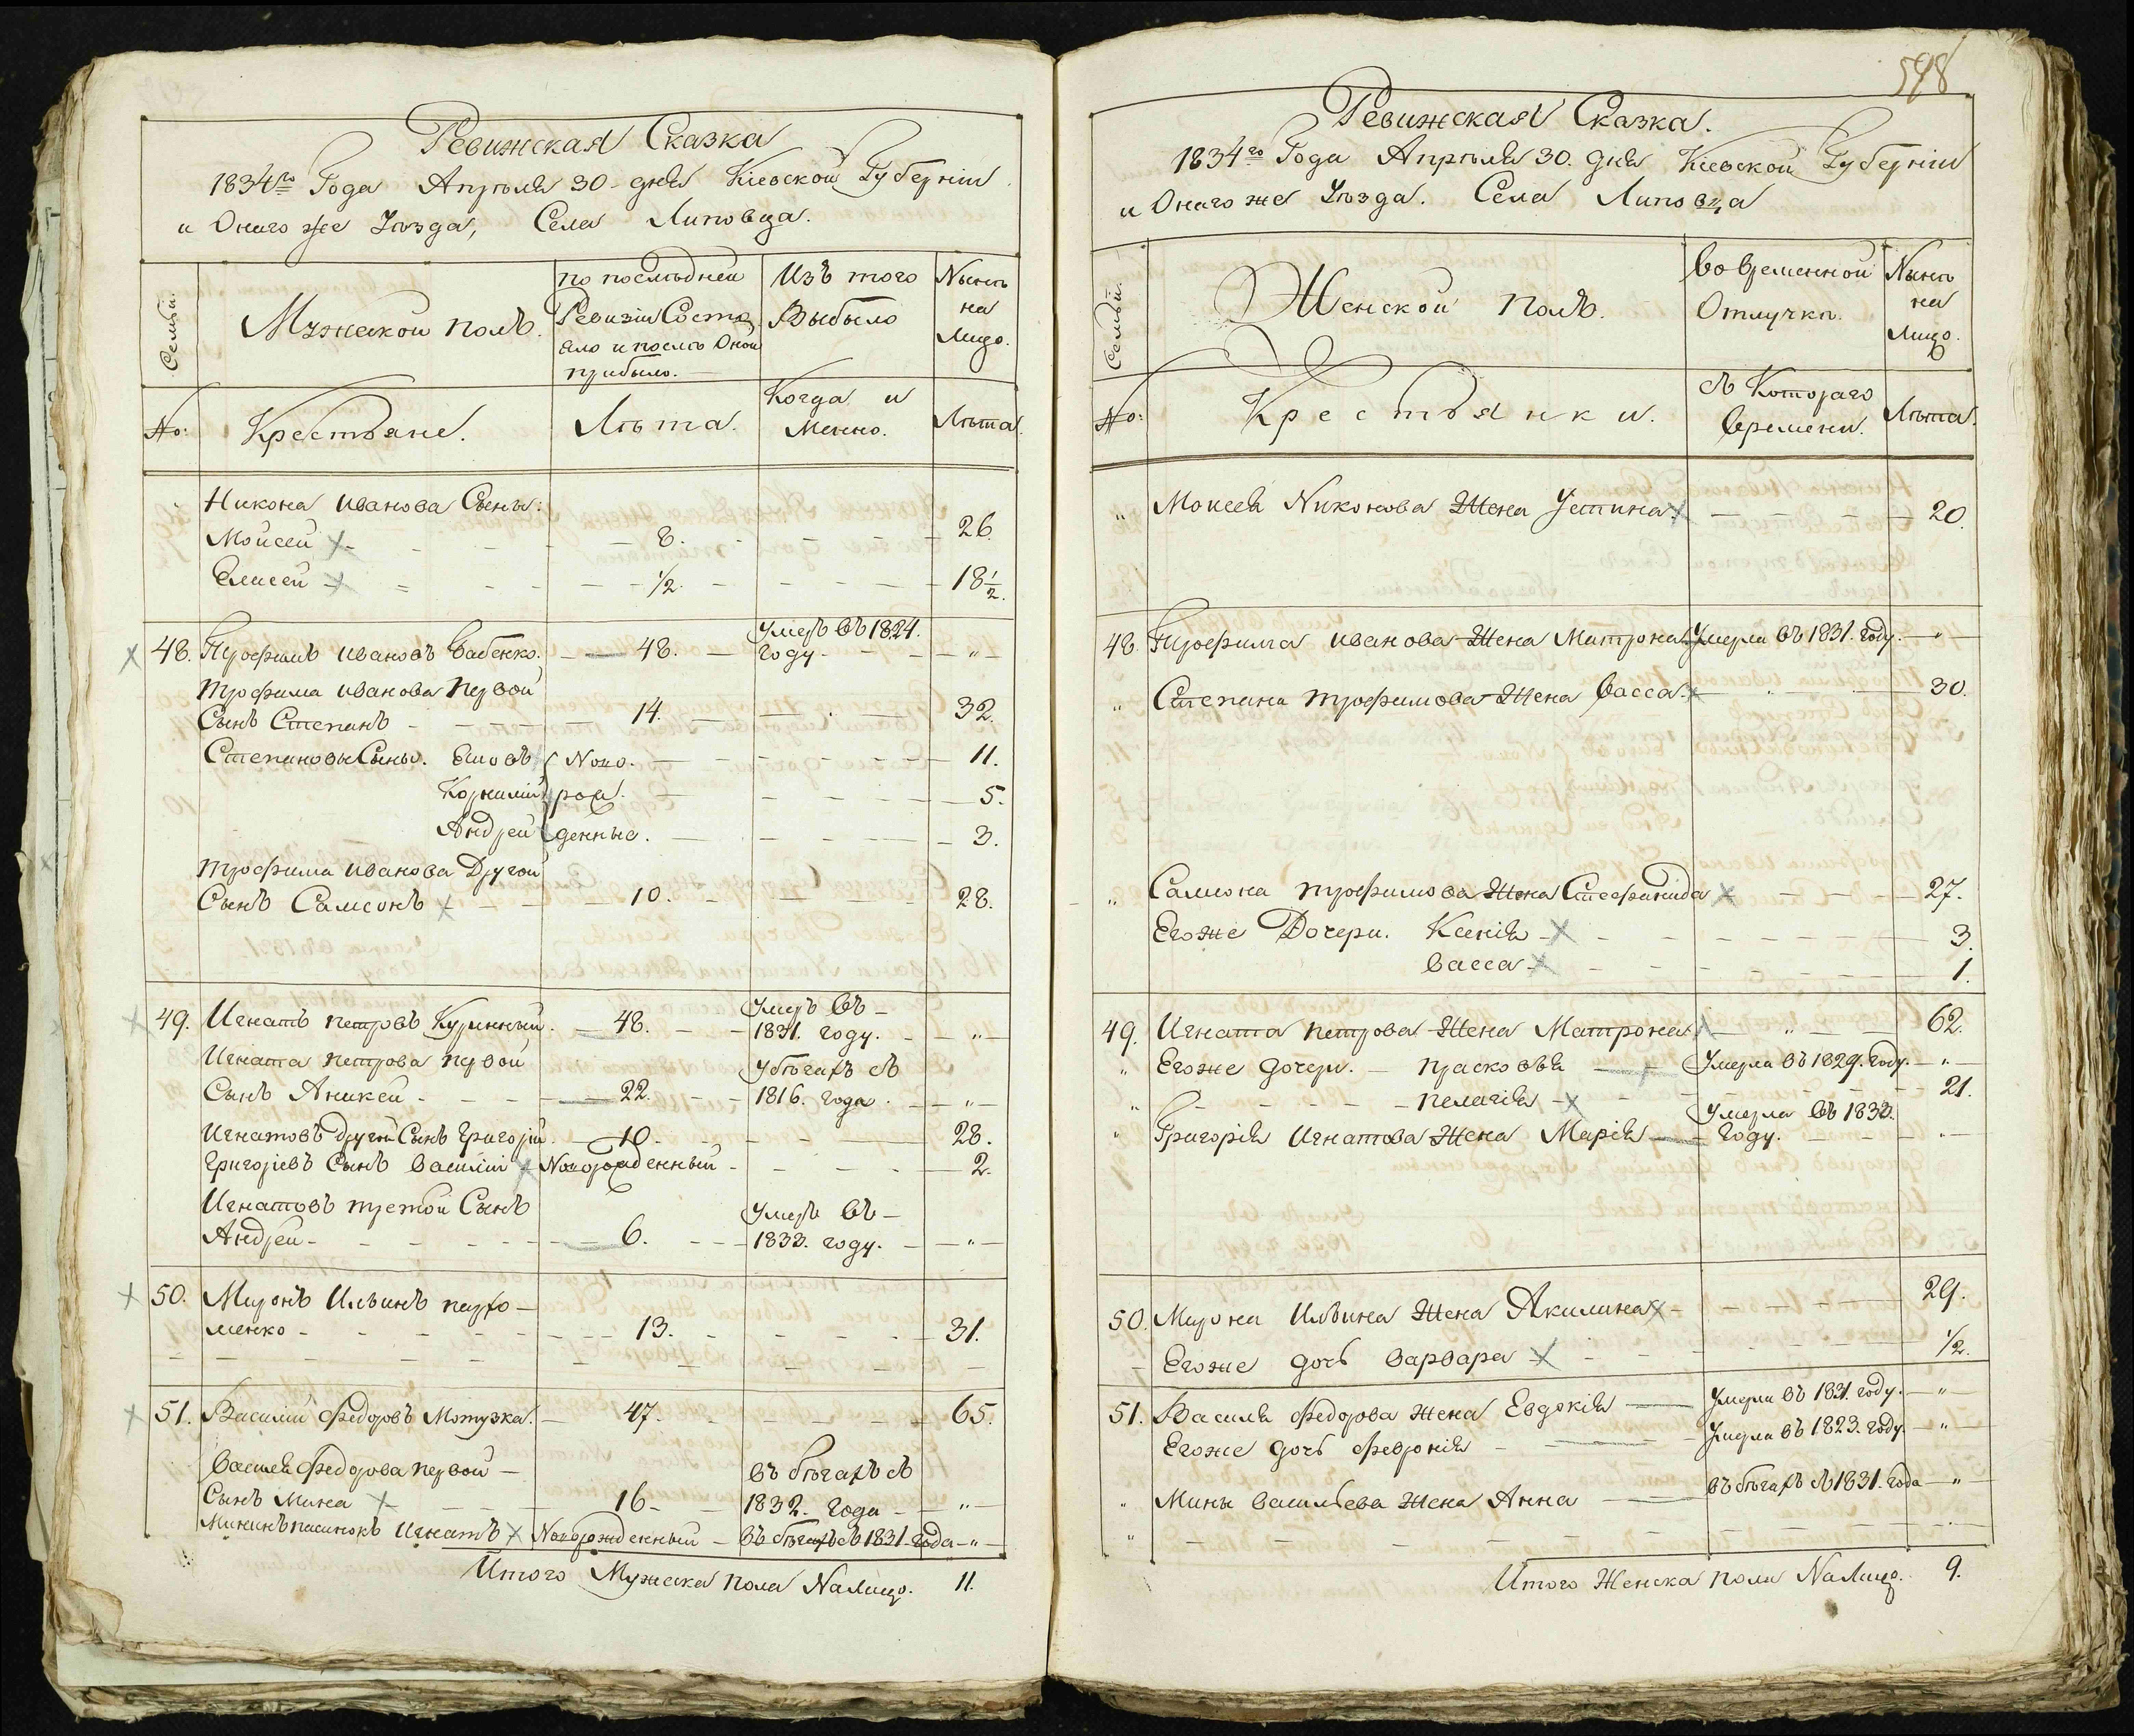 Ревижская Сказка
1834го Года Апрѣля 30 дня Кіевской Губерніи
и Онаго же Уѣзда, Села Липовца.
Семьи.
Мужескои полъ.
по послѣдней
Ревизіи Состо
яло и послѣ Оной
прибыло.
Изъ того
Выбыло
Нынѣ
на
Лицо.
No:
Крестьяне.
Лѣта.
Когда и
Менно.
Лѣта.
Никона Иванова Сыны:
Мойсей 8. 26.
Елисей 1/2. 18 1/2.
48. Трофимъ Ивановъ Бабенко. 48. Умеръ въ 1824. году. "
Трофима Иванова первой
Сынъ Степанъ 14. 32.
Степановы Сыны. Яковъ Ново. 11.
Корнилій рож. 5.
Андрей денные. 3.
Трофима Иванова Другой
Сынъ Самсонъ 10. 28.
49. Игнатъ Петровъ Куринный. 48. Умеръ въ 1831. году. "
Игната Петрова первой
Сынъ Аникей 22. Убѣгахъ съ 1816. года. "
Игнатовъ другой Сынъ Григорій. 10. 28.
Григоріевъ Сынъ Василій Новорожденный 2.
Игнатовъ третой Сынъ
Андрей 6. Умеръ въ 1833. году. "
50. Миронъ Ильинъ пархо-
менко 13. 31.
51. Василій Федоровъ Мотузка. 47. 65.
Василя Федорова первой
Сынъ Мина 16 въ бѣгахъ съ 1832. Года "
Мининъ пасинокъ Игнатъ Новорожденный въ бѣгахъ съ 1831 года "
Итого Мужеска пола НаЛицо. 11.
598
Ревижская Сказка.
1834го Года Апрѣля 30. дня Кіевской Губерніи
и Онаго же Уѣзда. Села Липовца
Семьи.
Женской полъ.
Во Временной
Отлучкѣ.
Нынѣ
на
Лицо.
No:
Крестьянки.
съ Котораго
Времени.
Лѣта.
" Моисея Никонова Жена Устина 20.
48. Трофима Иванова Жена Матрона Умерла въ 1831. году. "
" Степана Трофимова Жена Васса 30.
" Самсона Трофимова Жена Стефанида 27.
Егоже Дочери. Ксенія 3.
Васса 1.
49. Игната Петрова Жена Матрона " 62.
" Егоже дочери. Прасковья Умерла въ 1829. году. "
" Пелагія 21.
" Григорія Игнатова Жена Марія Умерла въ 1833. Году. "
50. Мирона Ильина Жена Акилина 29.
Егоже дочь Варвара 1/2.
51. Василя Федорова Жена Евдокія Умерла въ 1831. году. "
Егоже дочь Февронія Умерла въ 1823. году. "
" Мины Васильева Жена Анна въ бѣгахъ съ 1831. года "
Итого Женска пола НаЛицо. 9.